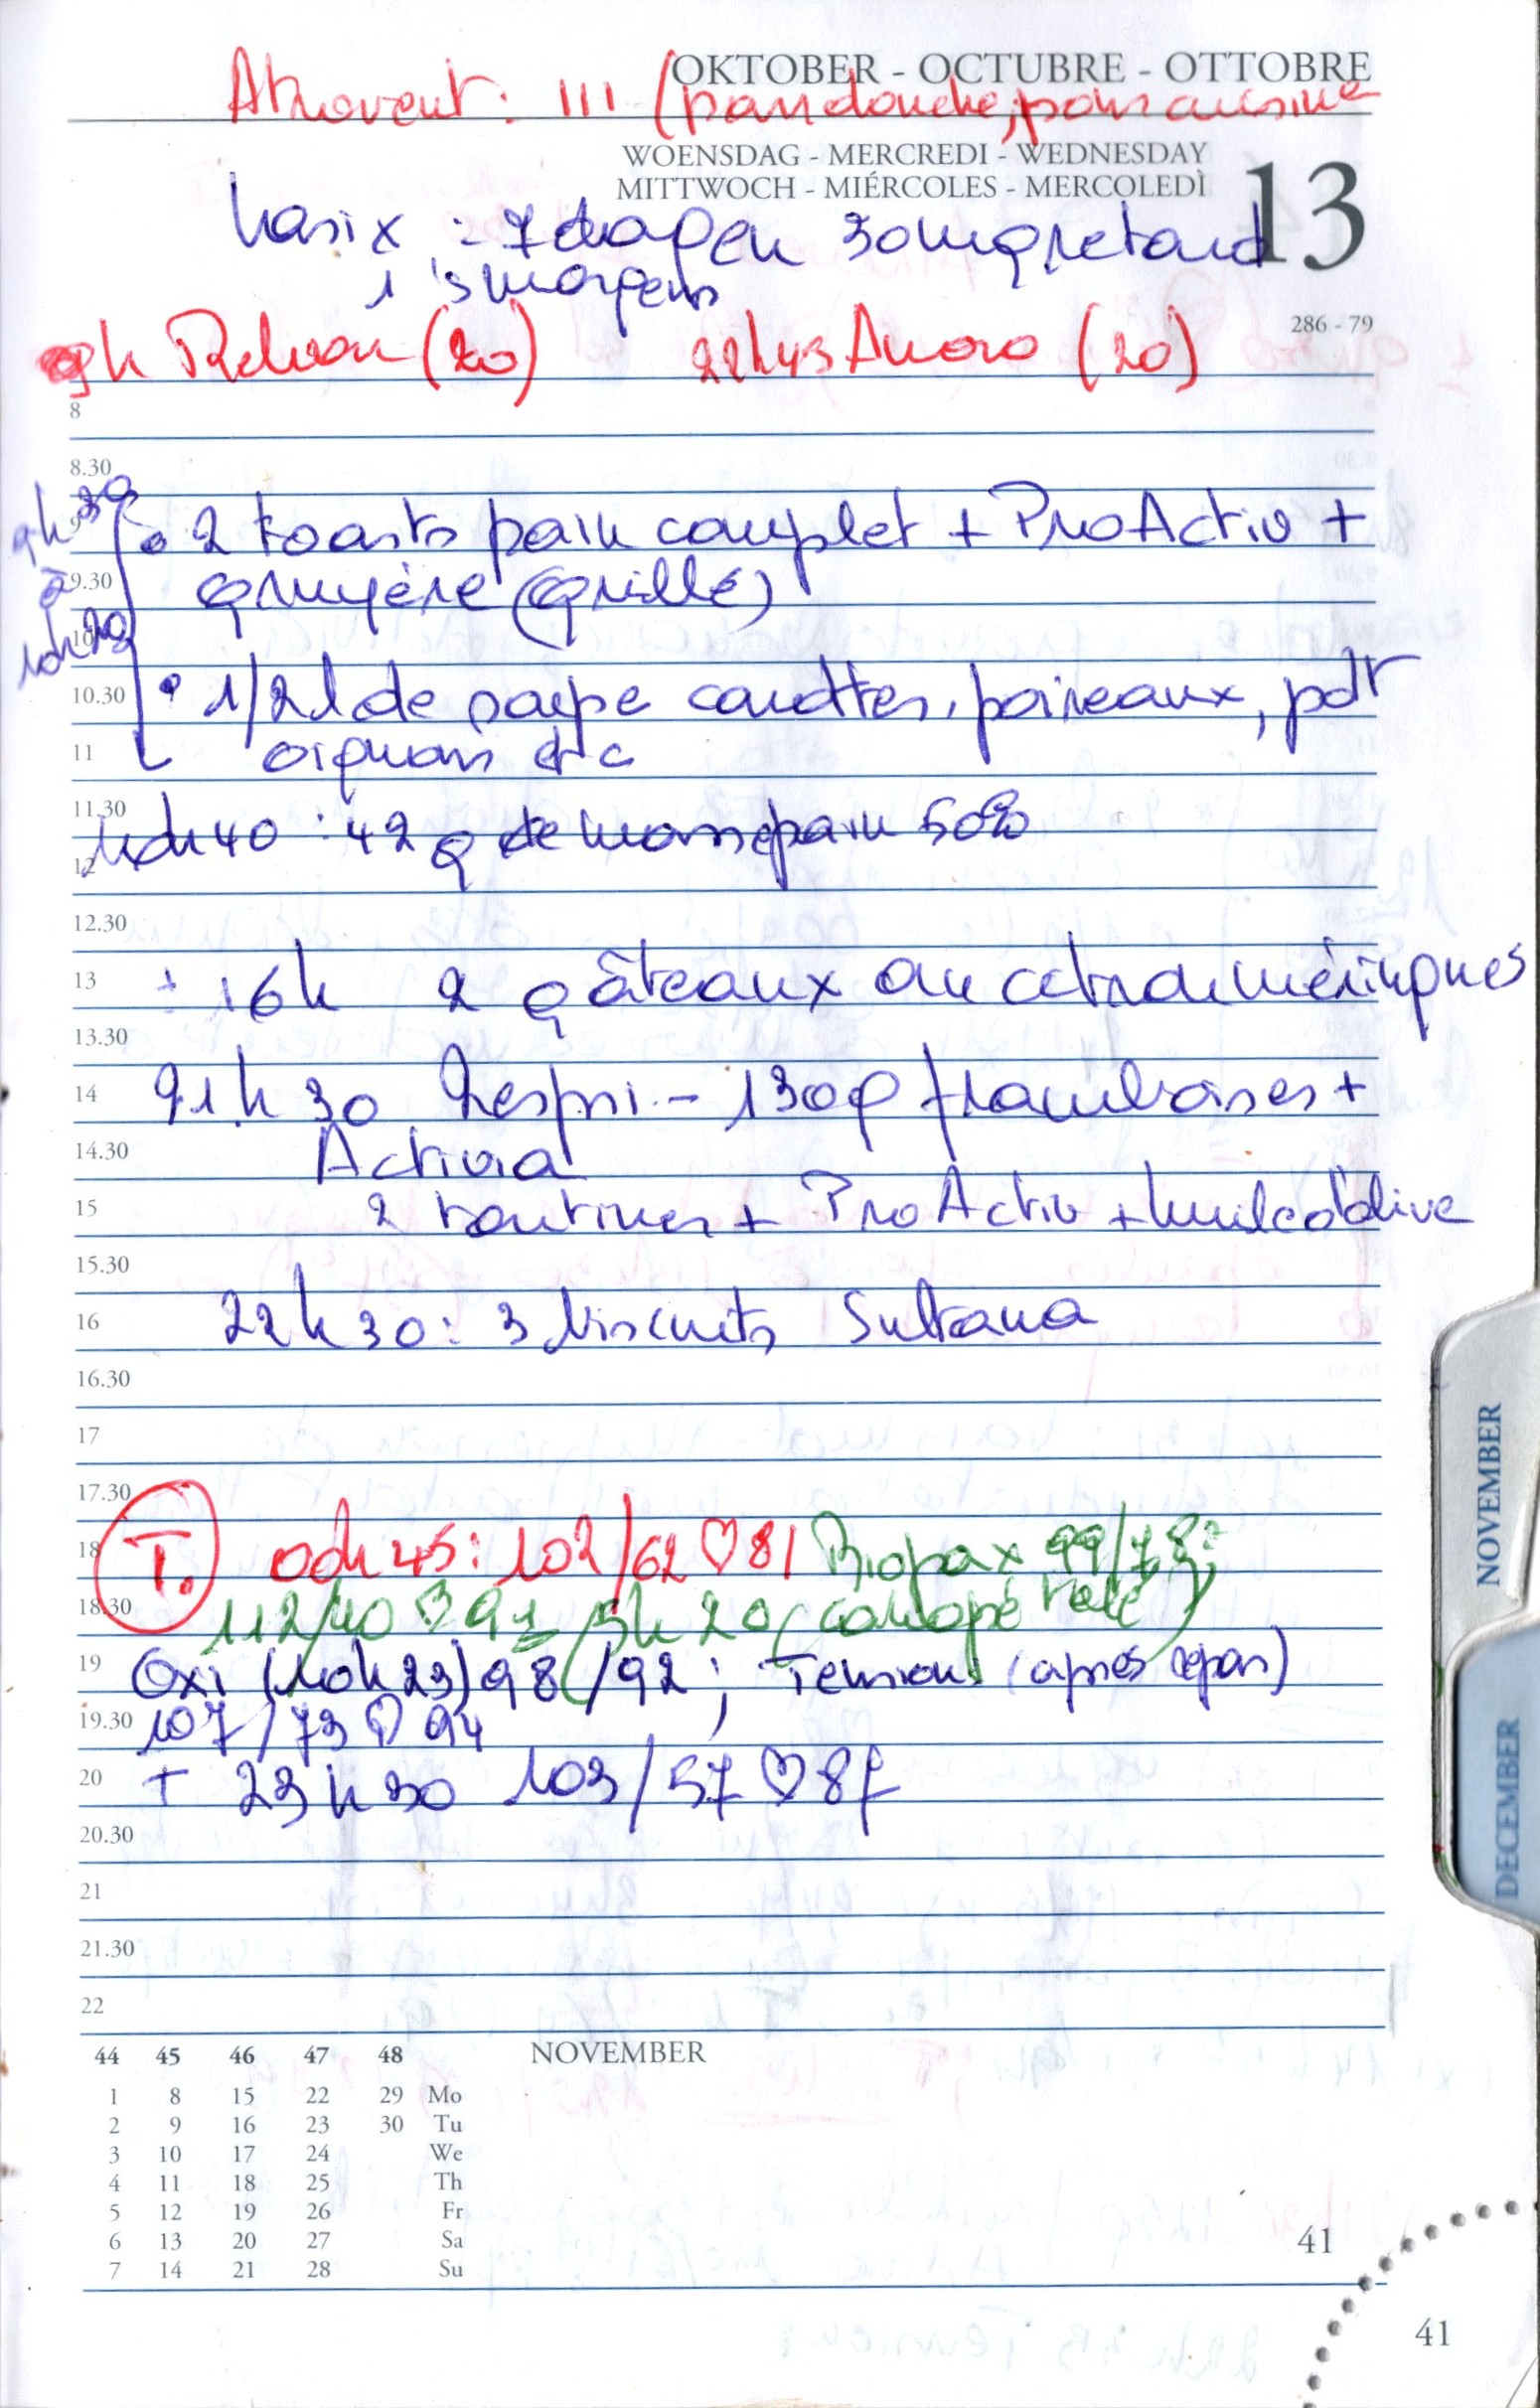 OKTOBER - OCTUBRE - OTTOBRE
Atrovent : III (pour douche, pour cuisine
WOENSDAG - MERCREDI - WEDNESDAY
MITTWOCH - MIÉRCOLES - MERCOLEDÌ
13
Lasix : 30 mg retard
1 's morgens
286 - 79
9h Relvar (20) 22h45 Anoro (20)
8
8.30
9h30
• 2 toasts pain complet + ProActiv +
à 9.30 gruyère (grillé)
10h20
10.30 • 1/2 l de soupe carottes, poireaux, pdt
11 oignons etc
11.30
10h40 : 42 g de massepain 50%
12
12.30
13 ± 16h 2 gâteaux au citron meringues
13.30
14 21h30 Zespri - 130g framboises +
14.30 Activia
15 2 tartines + ProActiv + huile d'olive
15.30
16 22h30 : 3 biscuits Sultana
16.30
17
17.30
18 T. 00h45 : 102/62 ♡ 81 Riopax 99/78;
18.30 112/70 ♡ 93 5h20 (canapé relé)
19 Oxi (10h23) 98/92 ; Tension (après repas)
19.30 107/73 ♡ 94
20 + 23h30 103/57 ♡ 87
20.30
21
21.30
22
44 45 46 47 48 NOVEMBER
1 8 15 22 29 Mo
2 9 16 23 30 Tu
3 10 17 24 We
4 11 18 25 Th
5 12 19 26 Fr
6 13 20 27 Sa
7 14 21 28 Su
41
41
NOVEMBER
DECEMBER